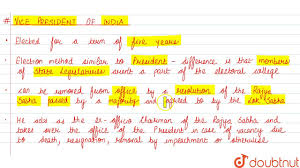 # VICE PRESIDENT OF INDIA
• Elected for a term of five years.
• Election method similar to President - difference is that members
of State legislatures aren't a part of the electoral college
• Can be removed from office by a resolution of the Rajya
Sabha passed by a majority and agreed to by the Lok Sabha
• He acts as the ex-officio Chairman of the Rajya Sabha and
takes over the office of the President in case of vacancy due
to death, resignation, removal by impeachment or otherwise.
doubtnut